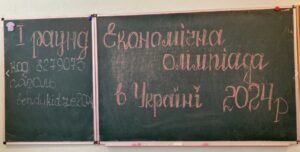 I раунд
код 3279073
пароль
bendukidze2024
Економічна
олімпіада
в Україні 2024р